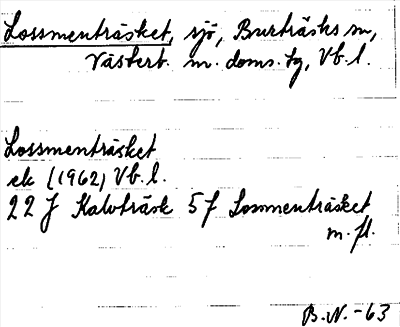 Lossmenträsket, sjö, Burträsks sn,
Västerb. m. doms. tg, Vb. l.
Lossmenträsket
ek (1962) Vb. l.
22 J Kalvträsk 5 f Lossmenträsket
m. fl.
B. N. -63